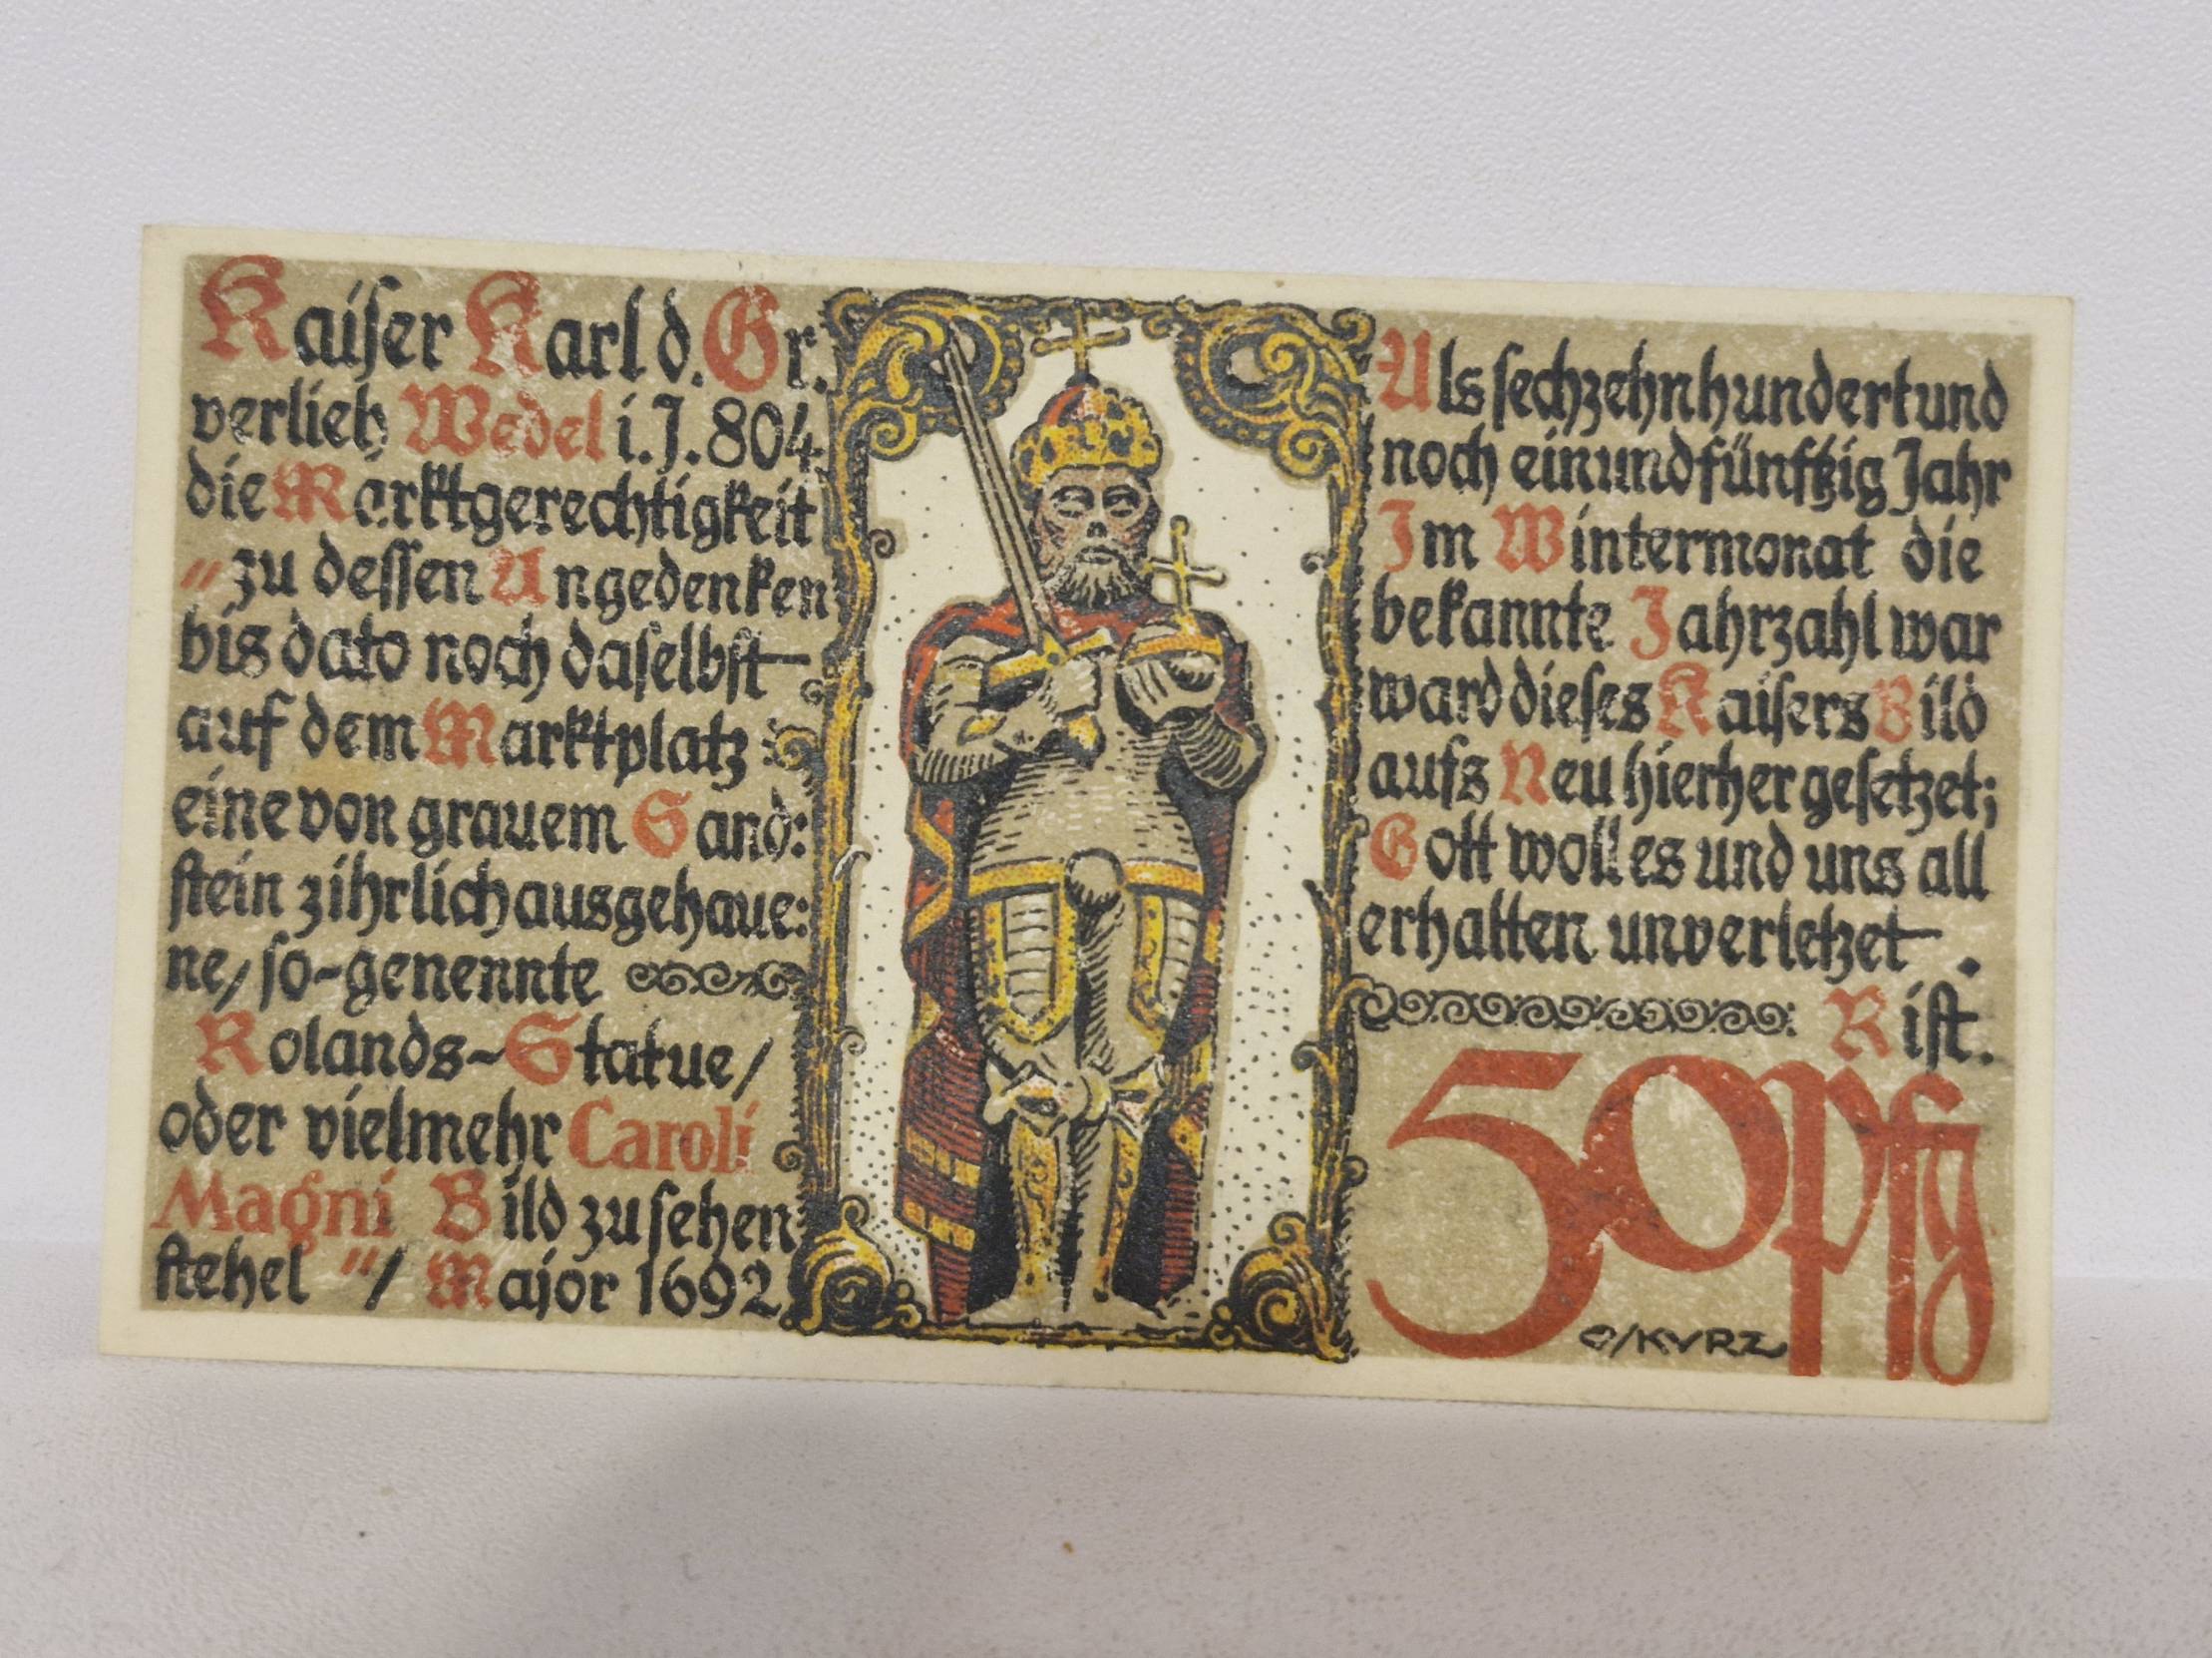 Kaiser Karl d. Gr.
verlieh Wedel i. J. 804
die Marktgerechtigkeit
"zu dessen Angedenken
bis dato noch daselbst
auf dem Marktplatz
eine von grauem Sand:
stein zihrlich ausgehaue:
ne/ so-genennte
Rolands-Statue/
oder vielmehr Caroli
Magni Bild zu sehen
stehel "/ Major 1692.
Als sechzehnhundert und
noch einundfünftzig Jahr
Im Wintermonat die
bekannte Jahrzahl war
ward dieses Kaisers Bild
aufs Neu hierher gesetzet;
Gott woll es und uns all
erhalten unverletzet.
Rist.
50 Pfg
O/KVRZ